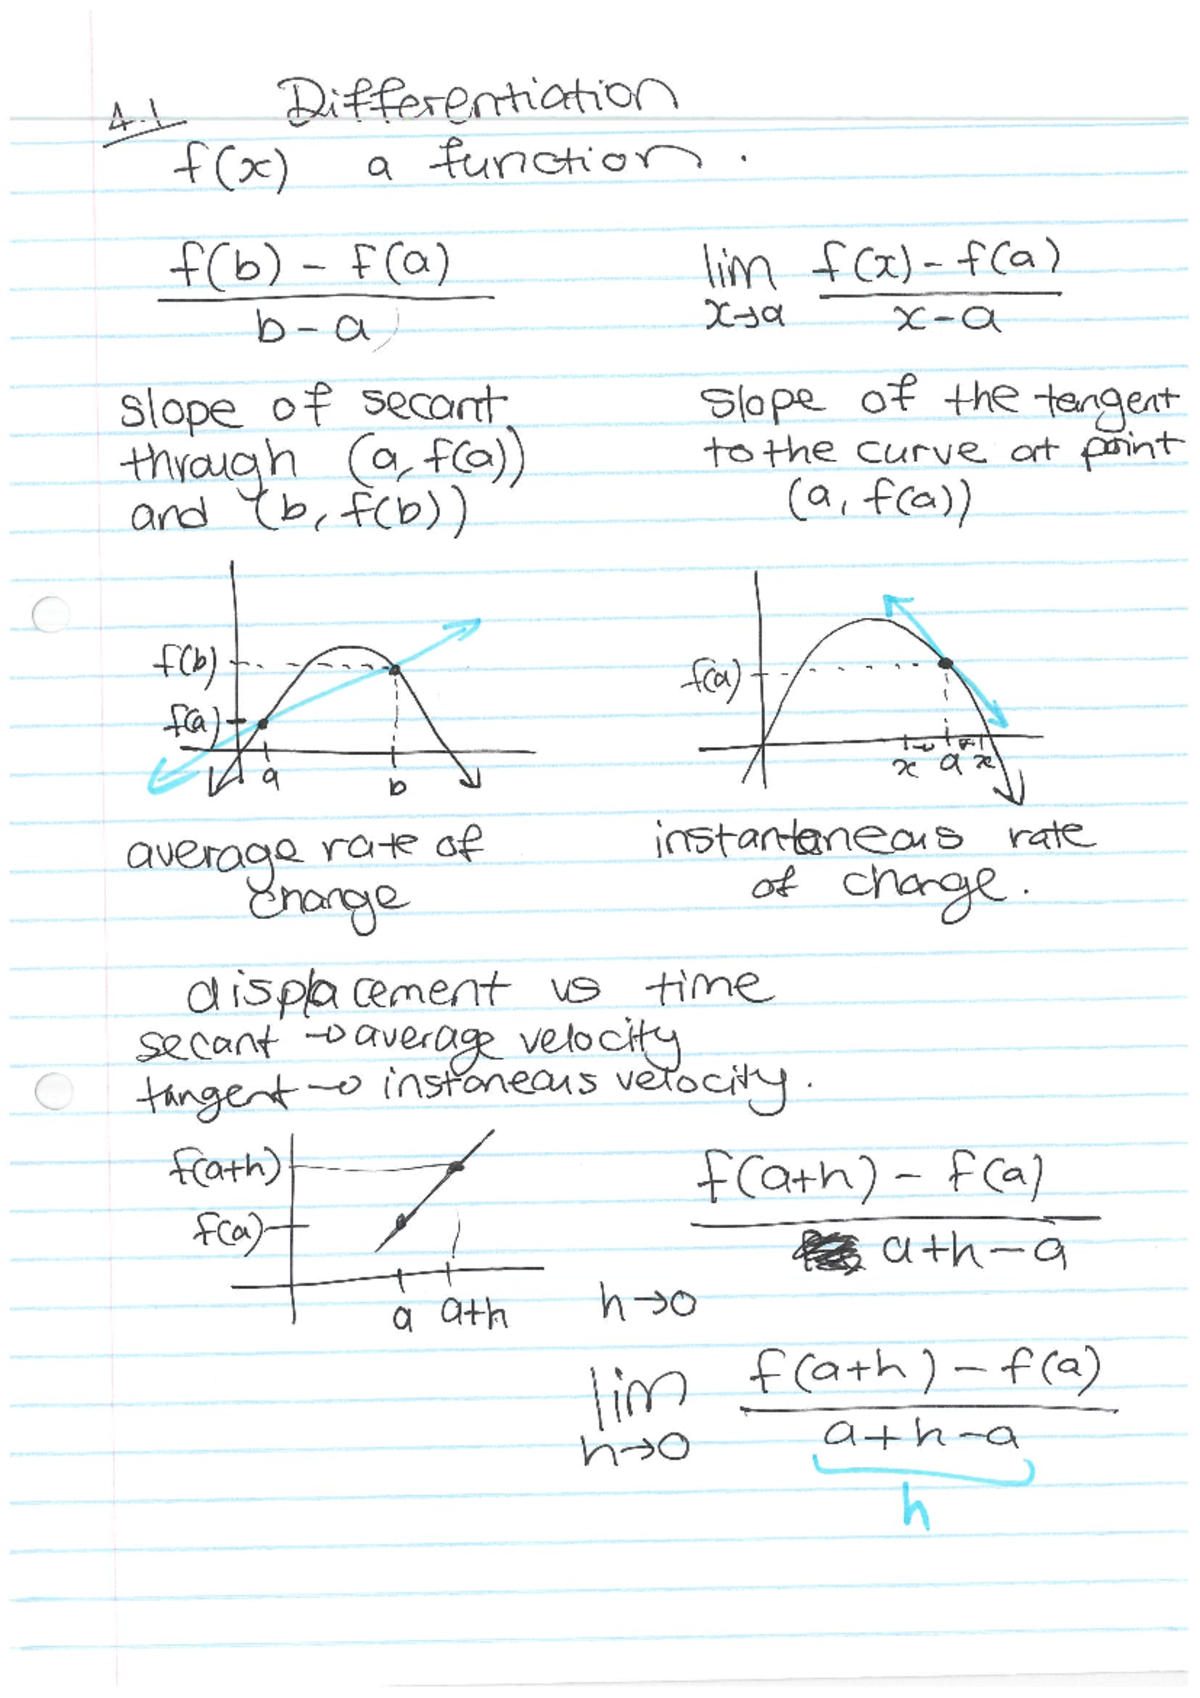 4.1 Differentiation
f(x) a function.
f(b) - f(a)
b - a
lim f(x) - f(a)
x→a x - a
slope of secant
through (a, f(a))
and (b, f(b))
slope of the tangent
to the curve at point
(a, f(a))
f(b)
f(a)
a b
f(a)
x a x
average rate of
change
instantaneous rate
of change.
displacement vs time
secant → average velocity
tangent → instaneous velocity.
f(a+h)
f(a)
a a+h
f(a+h) - f(a)
a+h-a
h→0
lim f(a+h) - f(a)
h→0 a+h-a
h